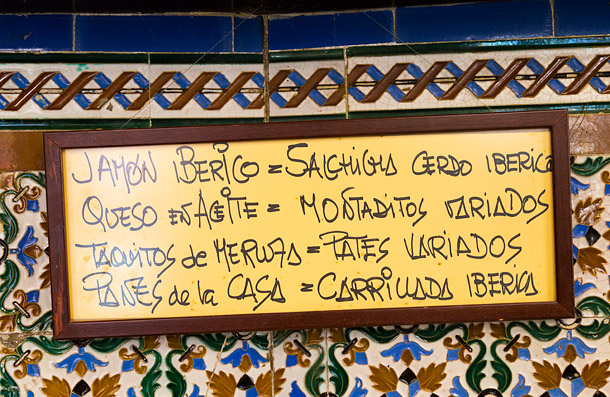 JAMÓN IBERICO = SALCHICHA CERDO IBERICO
QUESO EN ACEITE = MONTADITOS VARIADOS
TAQUITOS de MERLUZA = PATES VARIADOS
PANES de la CASA = CARRILLADA IBERICA